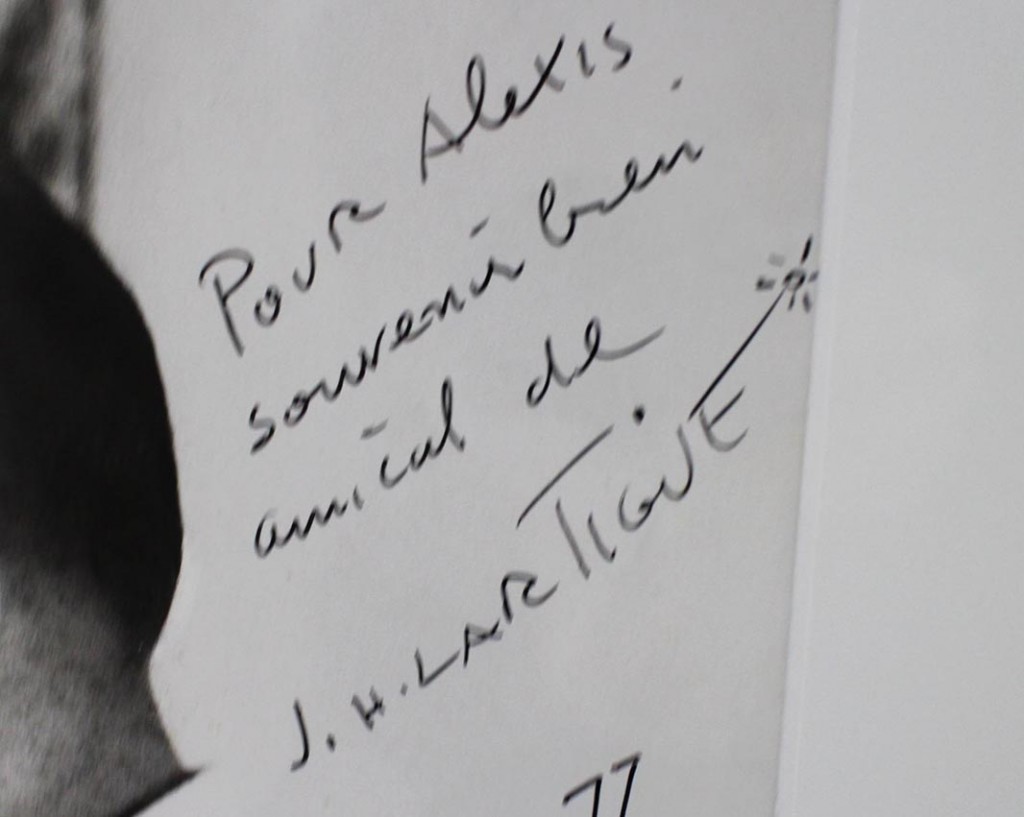 Pour Alexis
souvenir bien
amical de
J. H. LARTIGUE
77